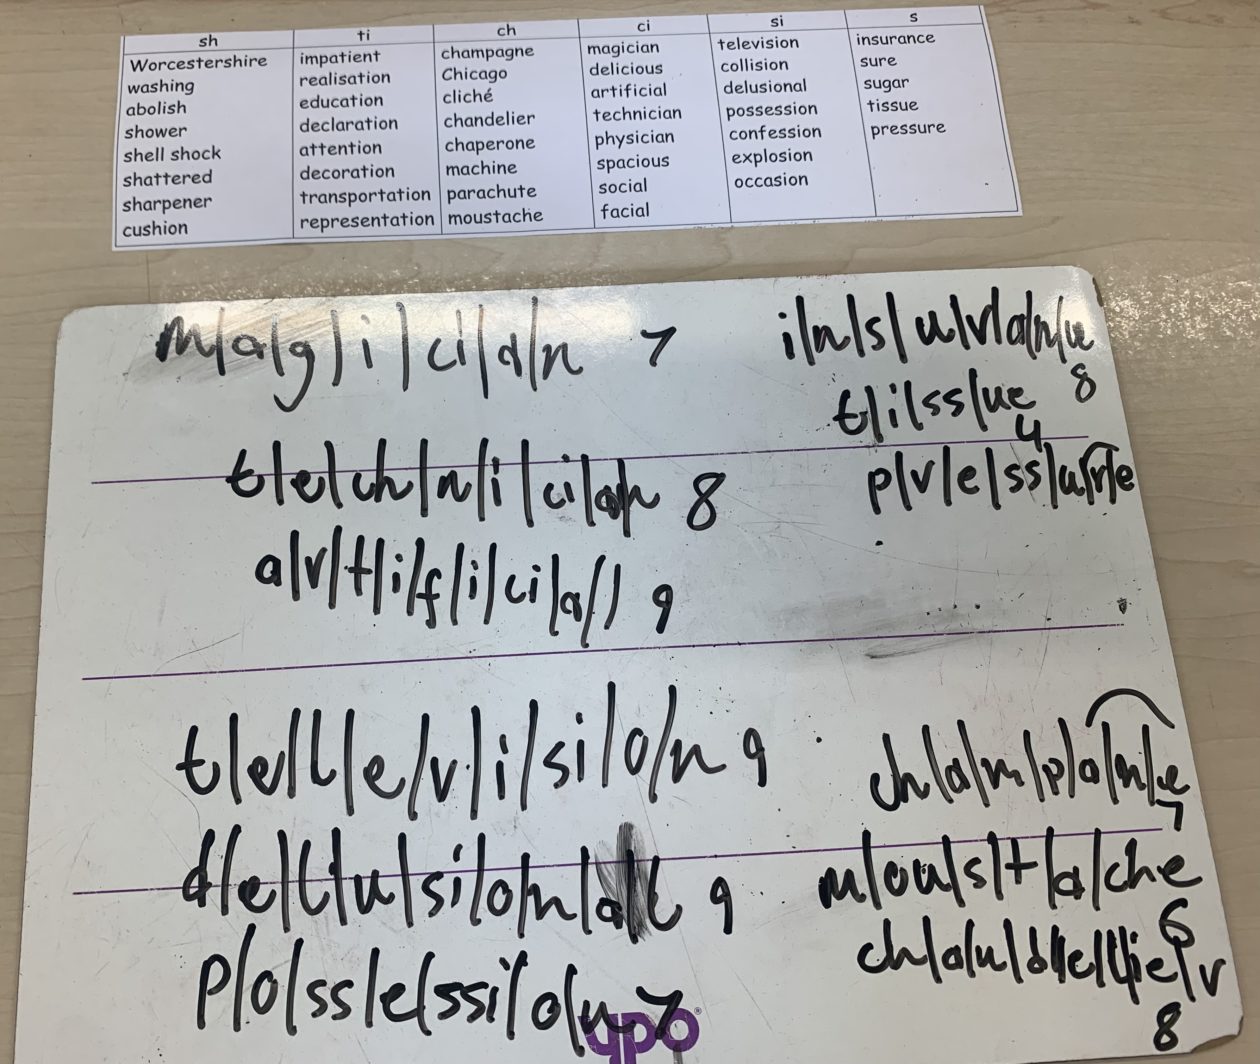 sh ti ch ci si s
Worcestershire impatient champagne magician television insurance
washing realisation Chicago delicious collision sure
abolish education cliché artificial delusional sugar
shower declaration chandelier technician possession tissue
shell shock attention chaperone physician confession pressure
shattered decoration machine spacious explosion
sharpener transportation parachute social occasion
cushion representation moustache facial
m/a/g/i/ci/a/n 7
t/e/ch/n/i/ci/a/n 8
a/r/t/i/f/i/ci/a/l 9
t/e/l/e/v/i/si/o/n 9
d/e/l/u/si/o/n/a/l 9
p/o/ss/e/ssi/o/n 7
i/n/s/u/r/a/n/ce
8
t/i/ss/ue
4
p/r/e/ss/u/r/e
ch/a/m/p/o/n/e
7
m/ou/s/t/a/che
6
ch/a/n/d/e/l/ie/r
8
ypo